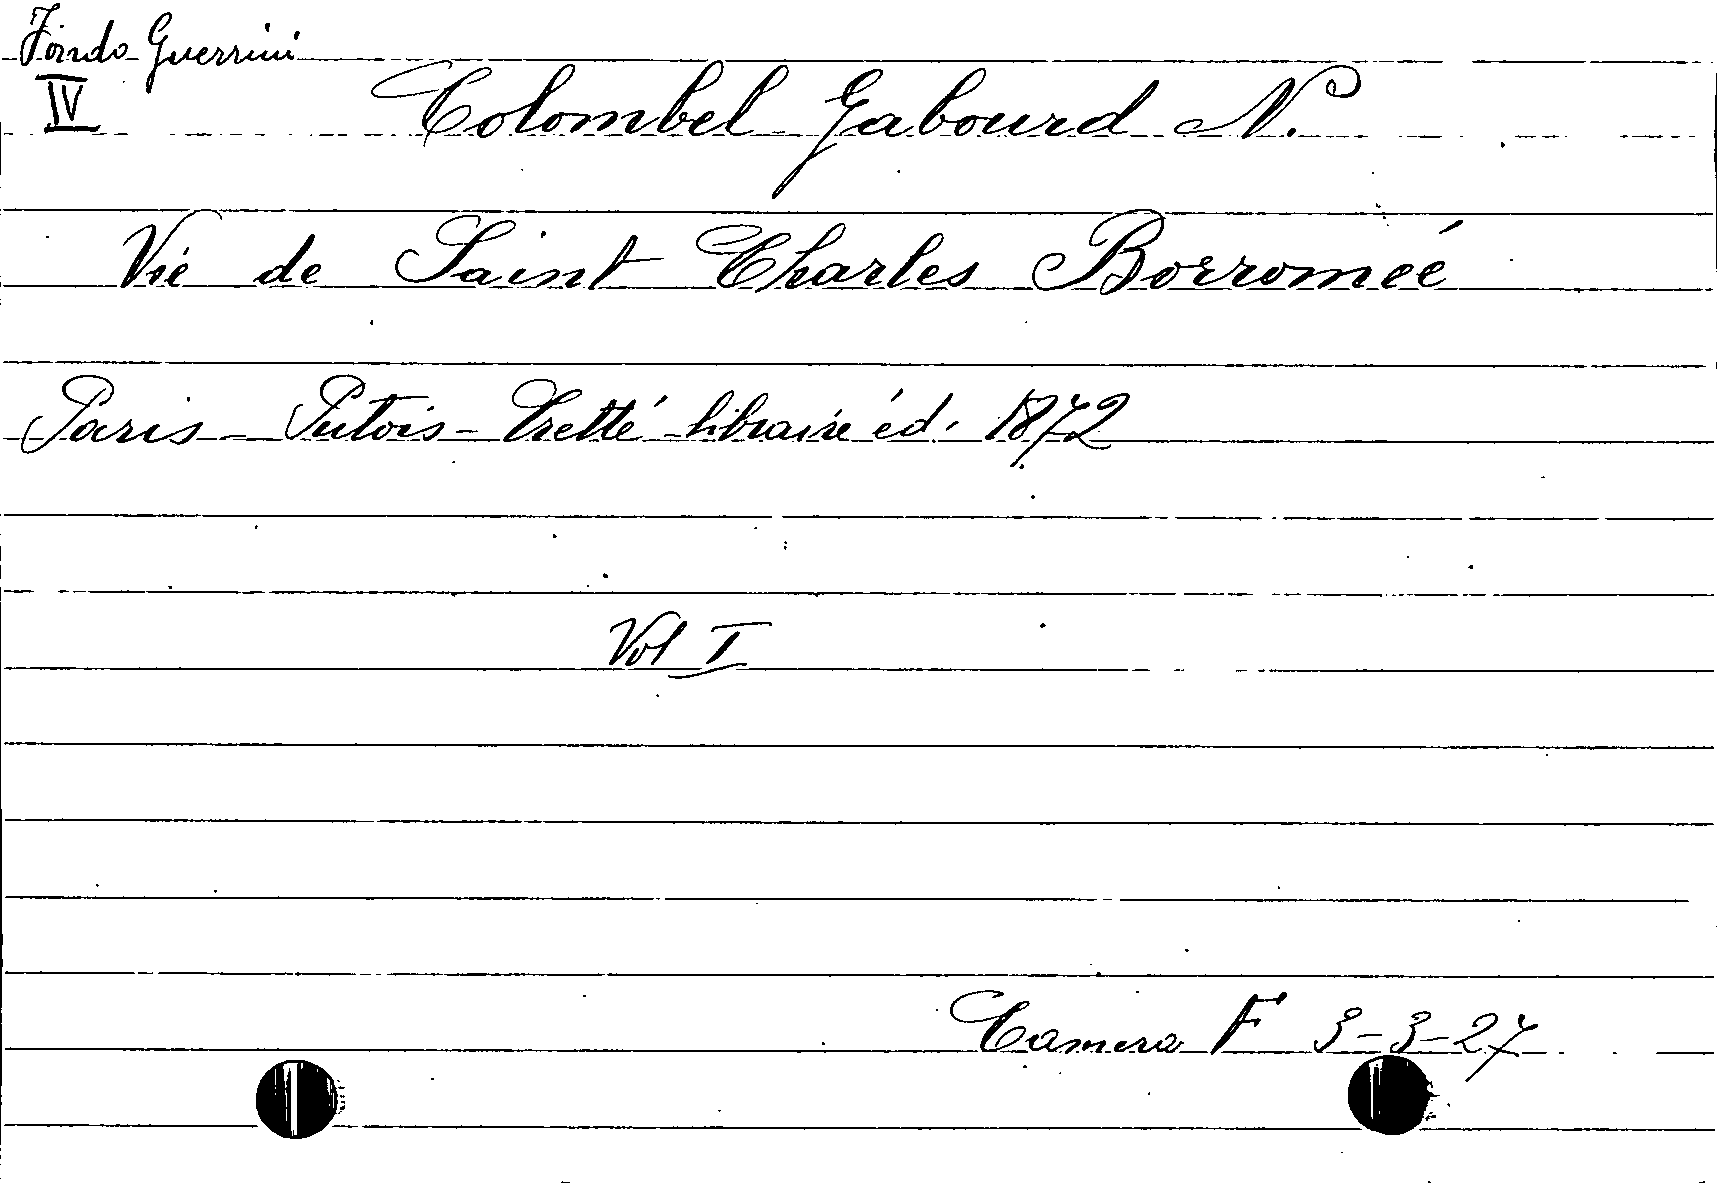 Fondo Guerrini
IV
Colombel Gabourd N.
Vie de Saint Charles Borromeé
Paris - Putois - Cretté libraire éd. 1872
Vol I
Camera F 3-3-27